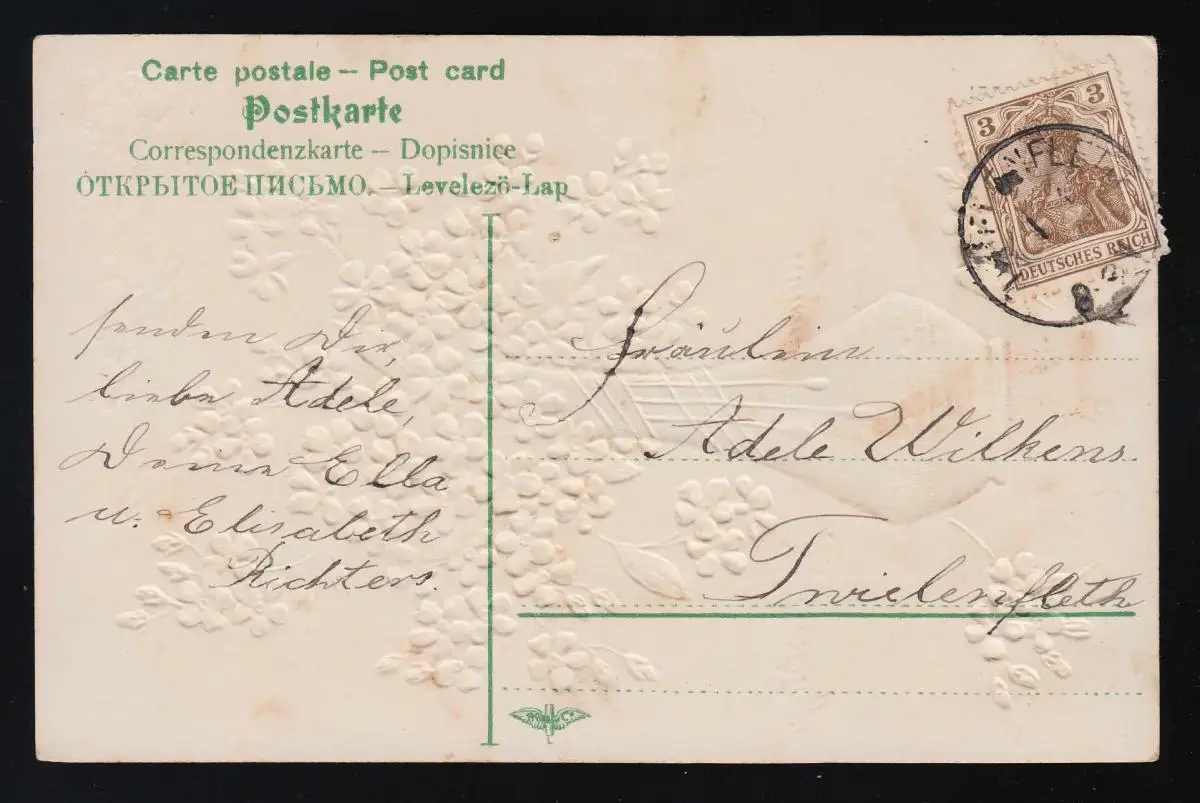 Carte postale – Post card
Postkarte
Correspondenzkarte – Dopisnice
ОТКРЫТОЕ ПИСЬМО. – Levelezö-Lap
3 3
DEUTSCHES REICH
senden Dir,
liebe Adele,
Deine Ella
u. Elisabeth
Richters.
Fräulein
Adele Wilkens.
Twielenfleth